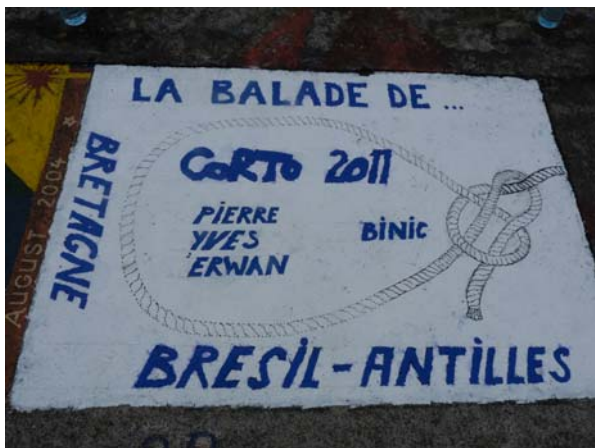 LA BALADE DE ...
BRETAGNE
CORTO 2011
PIERRE
YVES
ERWAN
BINIC
BRESIL-ANTILLES
AUGUST 2004